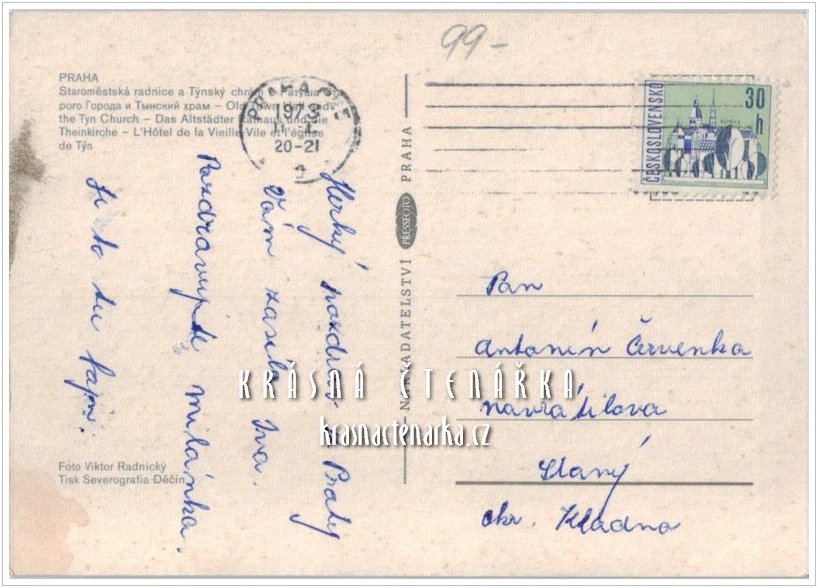 99-
PRAHA
Staroměstská radnice a Týnský chrám – Ратуша
рого Города и Тынский храм – Old Town Hall and
the Tyn Church – Das Altstädter Rathaus und die
Theinkirche – L'Hôtel de la Vieille Vile et l'église
de Týn
PRAHA
1973
20-21
ČESKOSLOVENSKO
30 h
Hezký pozdrav z Prahy
Vám zasílá Iva.
Pozdravujte Milánka.
Je to tu fajn.
NAKLADATELSTVÍ PRESSFOTO PRAHA
Pan
Antonín Červenka
Navrátilova
Slaný
okr. Kladno
KRÁSNÁ ČTENÁŘKA
krasnactenarka.cz
Foto Viktor Radnický
Tisk Severografia Děčín